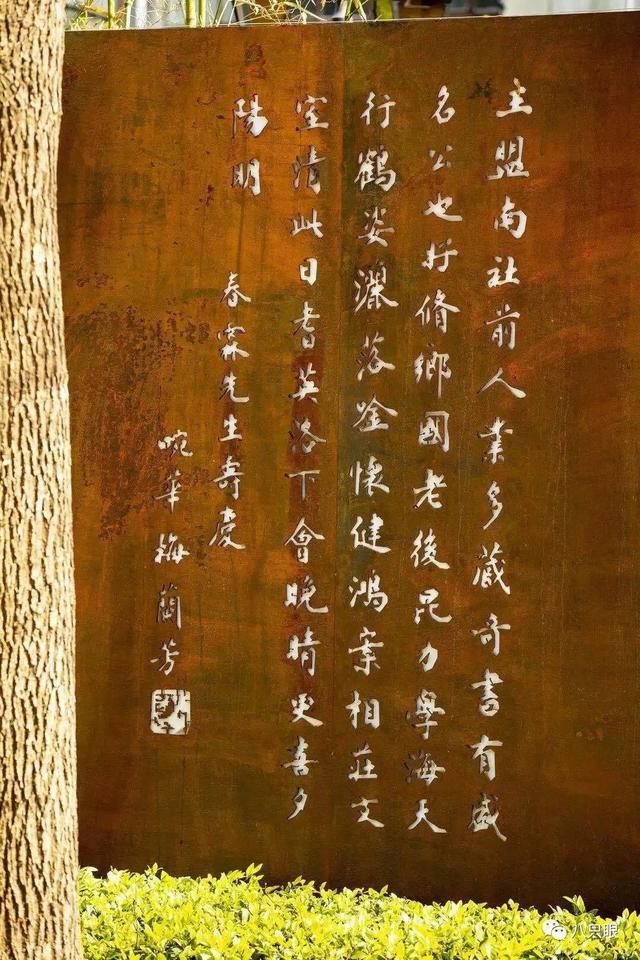 主盟南社前人業多藏奇書有盛
名公也好脩鄉國老後昆力學海天
行鶴姿落唫懷健鴻案相莊文
室清此日耆英洛下會晚晴更喜夕
陽明
春霖先生壽慶
畹華梅蘭芳
八只眼